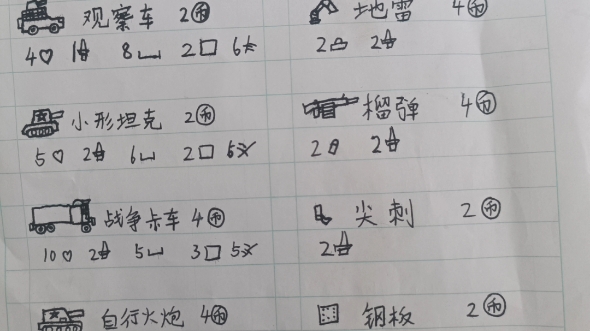 观察车 2币
4♡ 1 8 2□ 6
小形坦克 2币
5♡ 2 6 2□ 5
战争卡车 4币
10♡ 2 5 3□ 5
自行火炮 4币
地雷 4币
2 2
榴弹 4币
2 2
尖刺 2币
2
钢板 2币